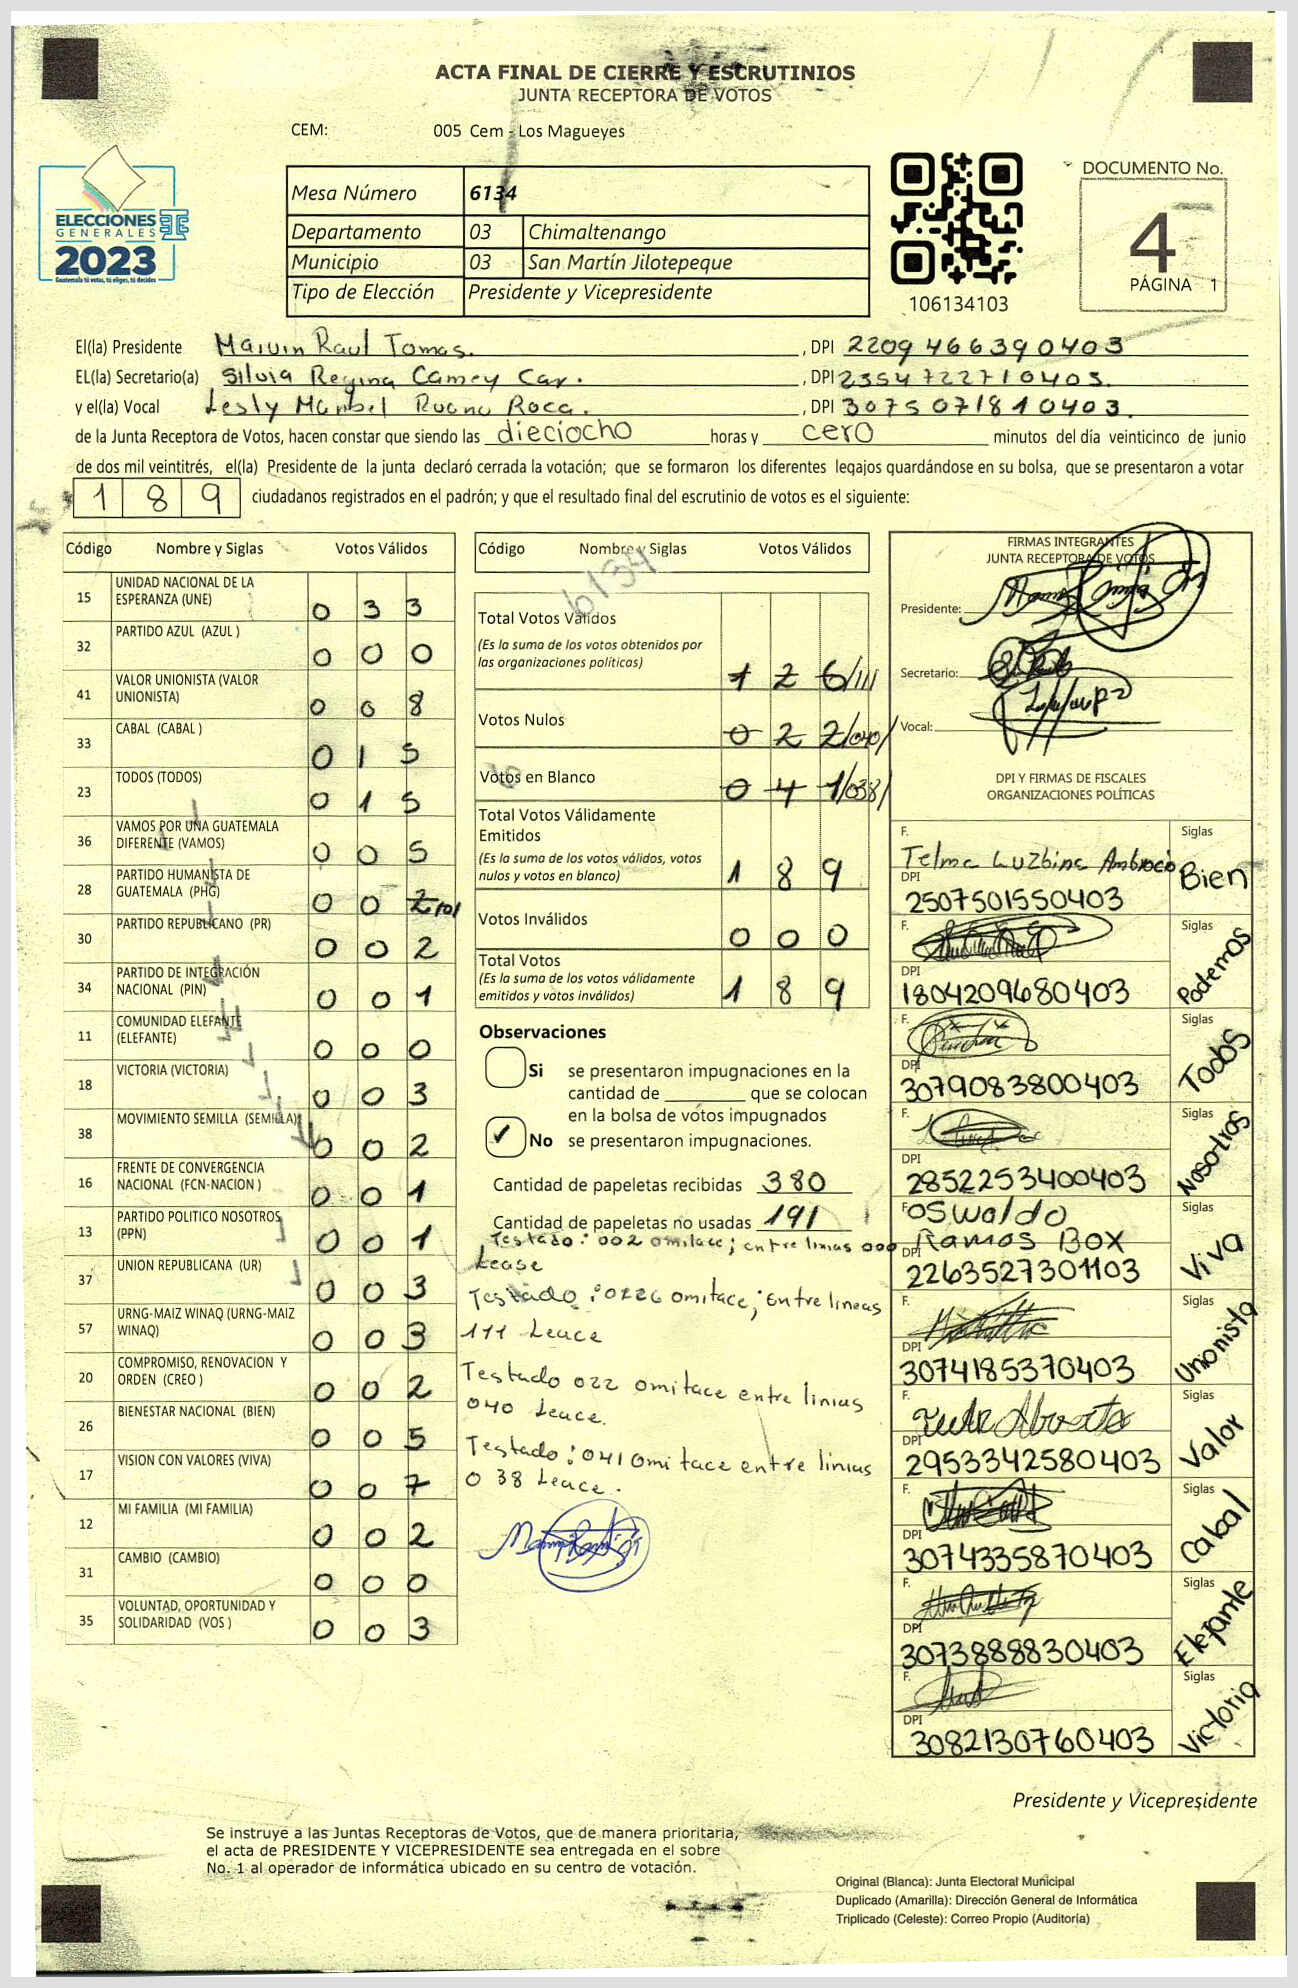 ACTA FINAL DE CIERRE Y ESCRUTINIOS
JUNTA RECEPTORA DE VOTOS
CEM: 005 Cem - Los Magueyes
ELECCIONES
GENERALES
2023
Guatemala tú votas, tú eliges, tú decides
Mesa Número 6134
Departamento 03 Chimaltenango
Municipio 03 San Martín Jilotepeque
Tipo de Elección Presidente y Vicepresidente
106134103
DOCUMENTO No.
4
PÁGINA 1
El(la) Presidente Marvin Raul Tomas. , DPI 2209 466390403
EL(la) Secretario(a) Silvia Regina Camey Car. , DPI 2354722710403.
y el(la) Vocal Lesly Maribel Ruano Roca. , DPI 3075071810403.
de la Junta Receptora de Votos, hacen constar que siendo las dieciocho horas y cero minutos del día veinticinco de junio
de dos mil veintitrés, el(la) Presidente de la junta declaró cerrada la votación; que se formaron los diferentes legajos guardándose en su bolsa, que se presentaron a votar
189 ciudadanos registrados en el padrón; y que el resultado final del escrutinio de votos es el siguiente:
Código Nombre y Siglas Votos Válidos
15 UNIDAD NACIONAL DE LA ESPERANZA (UNE) 0 3 3
32 PARTIDO AZUL (AZUL ) 0 0 0
41 VALOR UNIONISTA (VALOR UNIONISTA) 0 0 8
33 CABAL (CABAL ) 0 1 5
23 TODOS (TODOS) 0 1 5
36 VAMOS POR UNA GUATEMALA DIFERENTE (VAMOS) 0 0 5
28 PARTIDO HUMANISTA DE GUATEMALA (PHG) 0 0 2/0/
30 PARTIDO REPUBLICANO (PR) 0 0 2
34 PARTIDO DE INTEGRACIÓN NACIONAL (PIN) 0 0 1
11 COMUNIDAD ELEFANTE (ELEFANTE) 0 0 0
18 VICTORIA (VICTORIA) 0 0 3
38 MOVIMIENTO SEMILLA (SEMILLA) 0 0 2
16 FRENTE DE CONVERGENCIA NACIONAL (FCN-NACION ) 0 0 1
13 PARTIDO POLITICO NOSOTROS (PPN) 0 0 1
37 UNION REPUBLICANA (UR) 0 0 3
57 URNG-MAIZ WINAQ (URNG-MAIZ WINAQ) 0 0 3
20 COMPROMISO, RENOVACION Y ORDEN (CREO ) 0 0 2
26 BIENESTAR NACIONAL (BIEN) 0 0 5
17 VISION CON VALORES (VIVA) 0 0 7
12 MI FAMILIA (MI FAMILIA) 0 0 2
31 CAMBIO (CAMBIO) 0 0 0
35 VOLUNTAD, OPORTUNIDAD Y SOLIDARIDAD (VOS ) 0 0 3
Código Nombre y Siglas Votos Válidos
6134
Total Votos Válidos
(Es la suma de los votos obtenidos por
las organizaciones políticas) 1 2 6/111
Votos Nulos 0 2 2/040/
Votos en Blanco 0 4 1/038/
Total Votos Válidamente
Emitidos
(Es la suma de los votos válidos, votos
nulos y votos en blanco) 1 8 9
Votos Inválidos 0 0 0
Total Votos
(Es la suma de los votos válidamente
emitidos y votos inválidos) 1 8 9
Observaciones
Si se presentaron impugnaciones en la
cantidad de ________ que se colocan
en la bolsa de votos impugnados
✓ No se presentaron impugnaciones.
Cantidad de papeletas recibidas 380
Cantidad de papeletas no usadas 191
Testado: 002 omitace; entre linias 000
Lease
Testado : 0226 omitace; Entre lineas
111 Leace
Testado 022 omitace entre linias
040 Leace.
Testado : 041 omitace entre linias
0 38 Leace.
FIRMAS INTEGRANTES
JUNTA RECEPTORA DE VOTOS
Presidente:
Secretario:
Vocal:
DPI Y FIRMAS DE FISCALES
ORGANIZACIONES POLÍTICAS
F. Telma Luzbina Ambrocio Siglas Bien
DPI 2507501550403
F. Siglas Podemos
DPI 1804209680403
F. Siglas Todos
DPI 3079083800403
F. Siglas Nosotros
DPI 2852253400403
F. Oswaldo Siglas Viva
Ramos Box
DPI 2263527301103
F. Siglas Unionista
DPI 3074185370403
F. Siglas Valor
DPI 2953342580403
F. Siglas Cabal
DPI 3074335870403
F. Siglas Elefante
DPI 3073888830403
F. Siglas Victoria
DPI 3082130760403
Presidente y Vicepresidente
Se instruye a las Juntas Receptoras de Votos, que de manera prioritaria,
el acta de PRESIDENTE Y VICEPRESIDENTE sea entregada en el sobre
No. 1 al operador de informática ubicado en su centro de votación.
Original (Blanca): Junta Electoral Municipal
Duplicado (Amarilla): Dirección General de Informática
Triplicado (Celeste): Correo Propio (Auditoría)